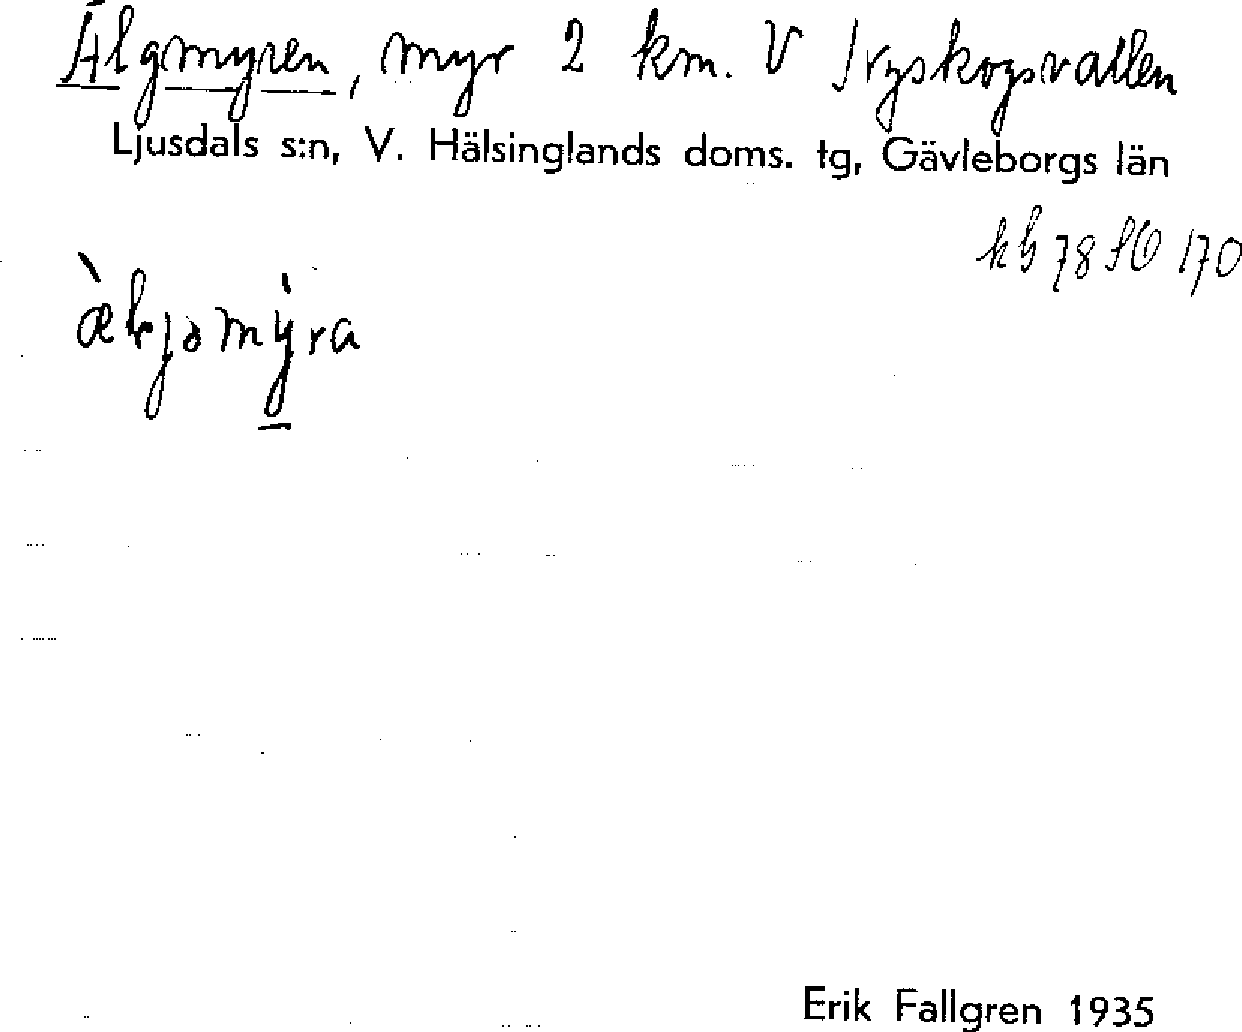 Älgmyren, myr 2 km. V Tryskogsvallen
Ljusdals s:n, V. Hälsinglands doms. tg, Gävleborgs län
kb 78 SO 170
Erik Fallgren 1935